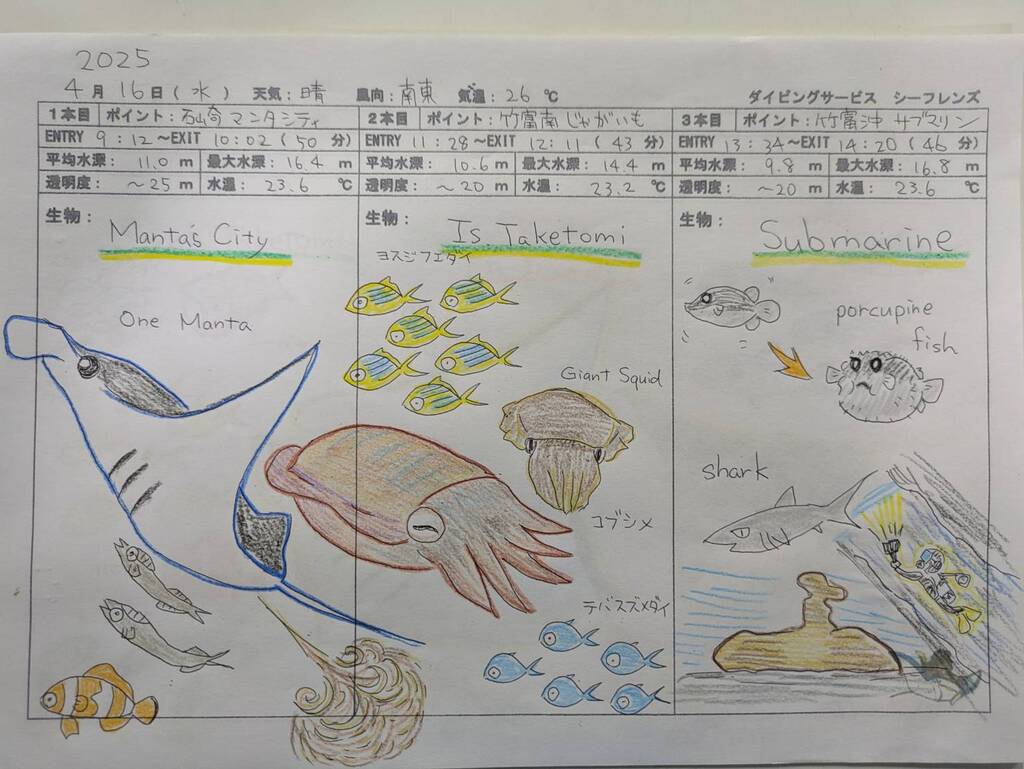 2025
4月16日(水) 天気:晴 風向:南東 気温:26℃ ダイビングサービス シーフレンズ
1本目 ポイント:石崎マンタシティ
ENTRY 9:12~EXIT 10:02(50分)
平均水深: 11.0 m 最大水深: 16.4 m
透明度: ~25 m 水温: 23.6 ℃
生物:
Manta's City
One Manta
2本目 ポイント:竹富南じゃがいも
ENTRY 11:28~EXIT 12:11(43分)
平均水深: 10.6 m 最大水深: 14.4 m
透明度: ~20 m 水温: 23.2 ℃
生物:
Is Taketomi
ヨスジフエダイ
Giant Squid
コブシメ
デバスズメダイ
3本目 ポイント:竹富沖 サブマリン
ENTRY 13:34~EXIT 14:20(46分)
平均水深: 9.8 m 最大水深: 16.8 m
透明度: ~20 m 水温: 23.6 ℃
生物:
Submarine
porcupine
fish
shark